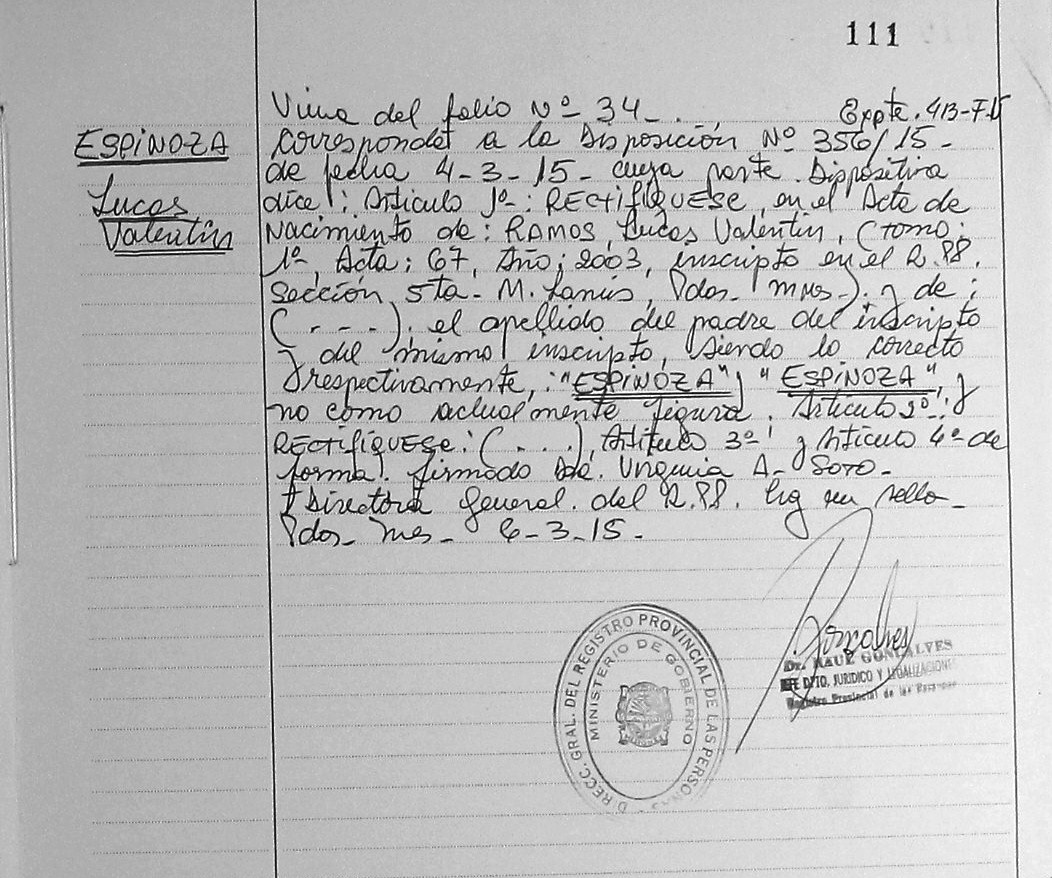 111
ESPINOZA
Lucas
Valentín
Viene del folio Nº 34-. Expte. 413-7-15
Corresponde a la Disposición Nº 356/15-
de fecha 4-3-15- cuya parte Dispositiva
dice: Artículo 1º-: RECTIFÍQUESE, en el Acta de
Nacimiento de: RAMOS, Lucas Valentín, (Tomo:
1º, Acta: 67, Año: 2003, inscripto en el R.PP.
Sección 5ta- M. Lanús, Pdas- Mnes-). y de:
(. - - -). el apellido del padre del inscripto
y del mismo inscripto, siendo lo correcto
respectivamente,: "ESPINOZA" y "ESPINOZA", y
no como actualmente figura. Artículo 2º: y
RECTIFÍQUESE: (. . .), Artículo 3º y Artículo 4º de
forma. firmado Urquia A- SOTO-
Directora General. del R.PP. Hay un sello-
Pdas- Mnes- 6-3-15-
DIRECC. GRAL. DEL REGISTRO PROVINCIAL DE LAS PERSONAS
MINISTERIO DE GOBIERNO
Dr. RAUL GONCALVES
JEFE DPTO. JURIDICO Y LEGALIZACIONES
Registro Provincial de las Personas